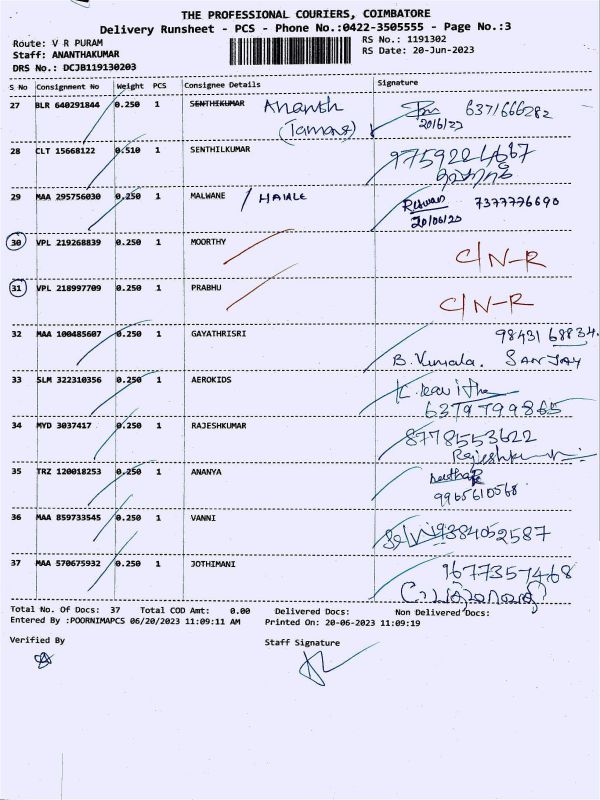 THE PROFESSIONAL COURIERS, COIMBATORE
Delivery Runsheet - PCS - Phone No.:0422-3505555 - Page No.:3
Route: V R PURAM
Staff: ANANTHAKUMAR
DRS No.: DCJB119130203
RS No.: 1191302
RS Date: 20-Jun-2023
S No Consignment No Weight PCS Consignee Details Signature
27 BLR 640291844 0.250 1 SENTHIKUMAR Ananth 6371666282
20/6/23
28 CLT 15668122 0.510 1 SENTHILKUMAR 9759224667
29 MAA 295756030 0.250 1 MALWANE / HAIALE Rizwan 7377776690
20/06/20
30 VPL 219268839 0.250 1 MOORTHY C/N-R
31 VPL 218997709 0.250 1 PRABHU C/N-R
32 MAA 100485607 0.250 1 GAYATHRISRI 98431 68834.
B. Kumala. SANJAY
33 SLM 322310356 0.250 1 AEROKIDS K. Kavitha
6379799865
34 MYD 3037417 0.250 1 RAJESHKUMAR 8778553622
Rajeshkumar
35 TRZ 120018253 0.250 1 ANANYA
9965610568
36 MAA 859733545 0.250 1 VANNI Selvi 9384052587
37 MAA 570675932 0.250 1 JOTHIMANI 9677357468
Total No. Of Docs: 37 Total COD Amt: 0.00 Delivered Docs: Non Delivered Docs:
Entered By :POORNIMAPCS 06/20/2023 11:09:11 AM Printed On: 20-06-2023 11:09:19
Verified By Staff Signature